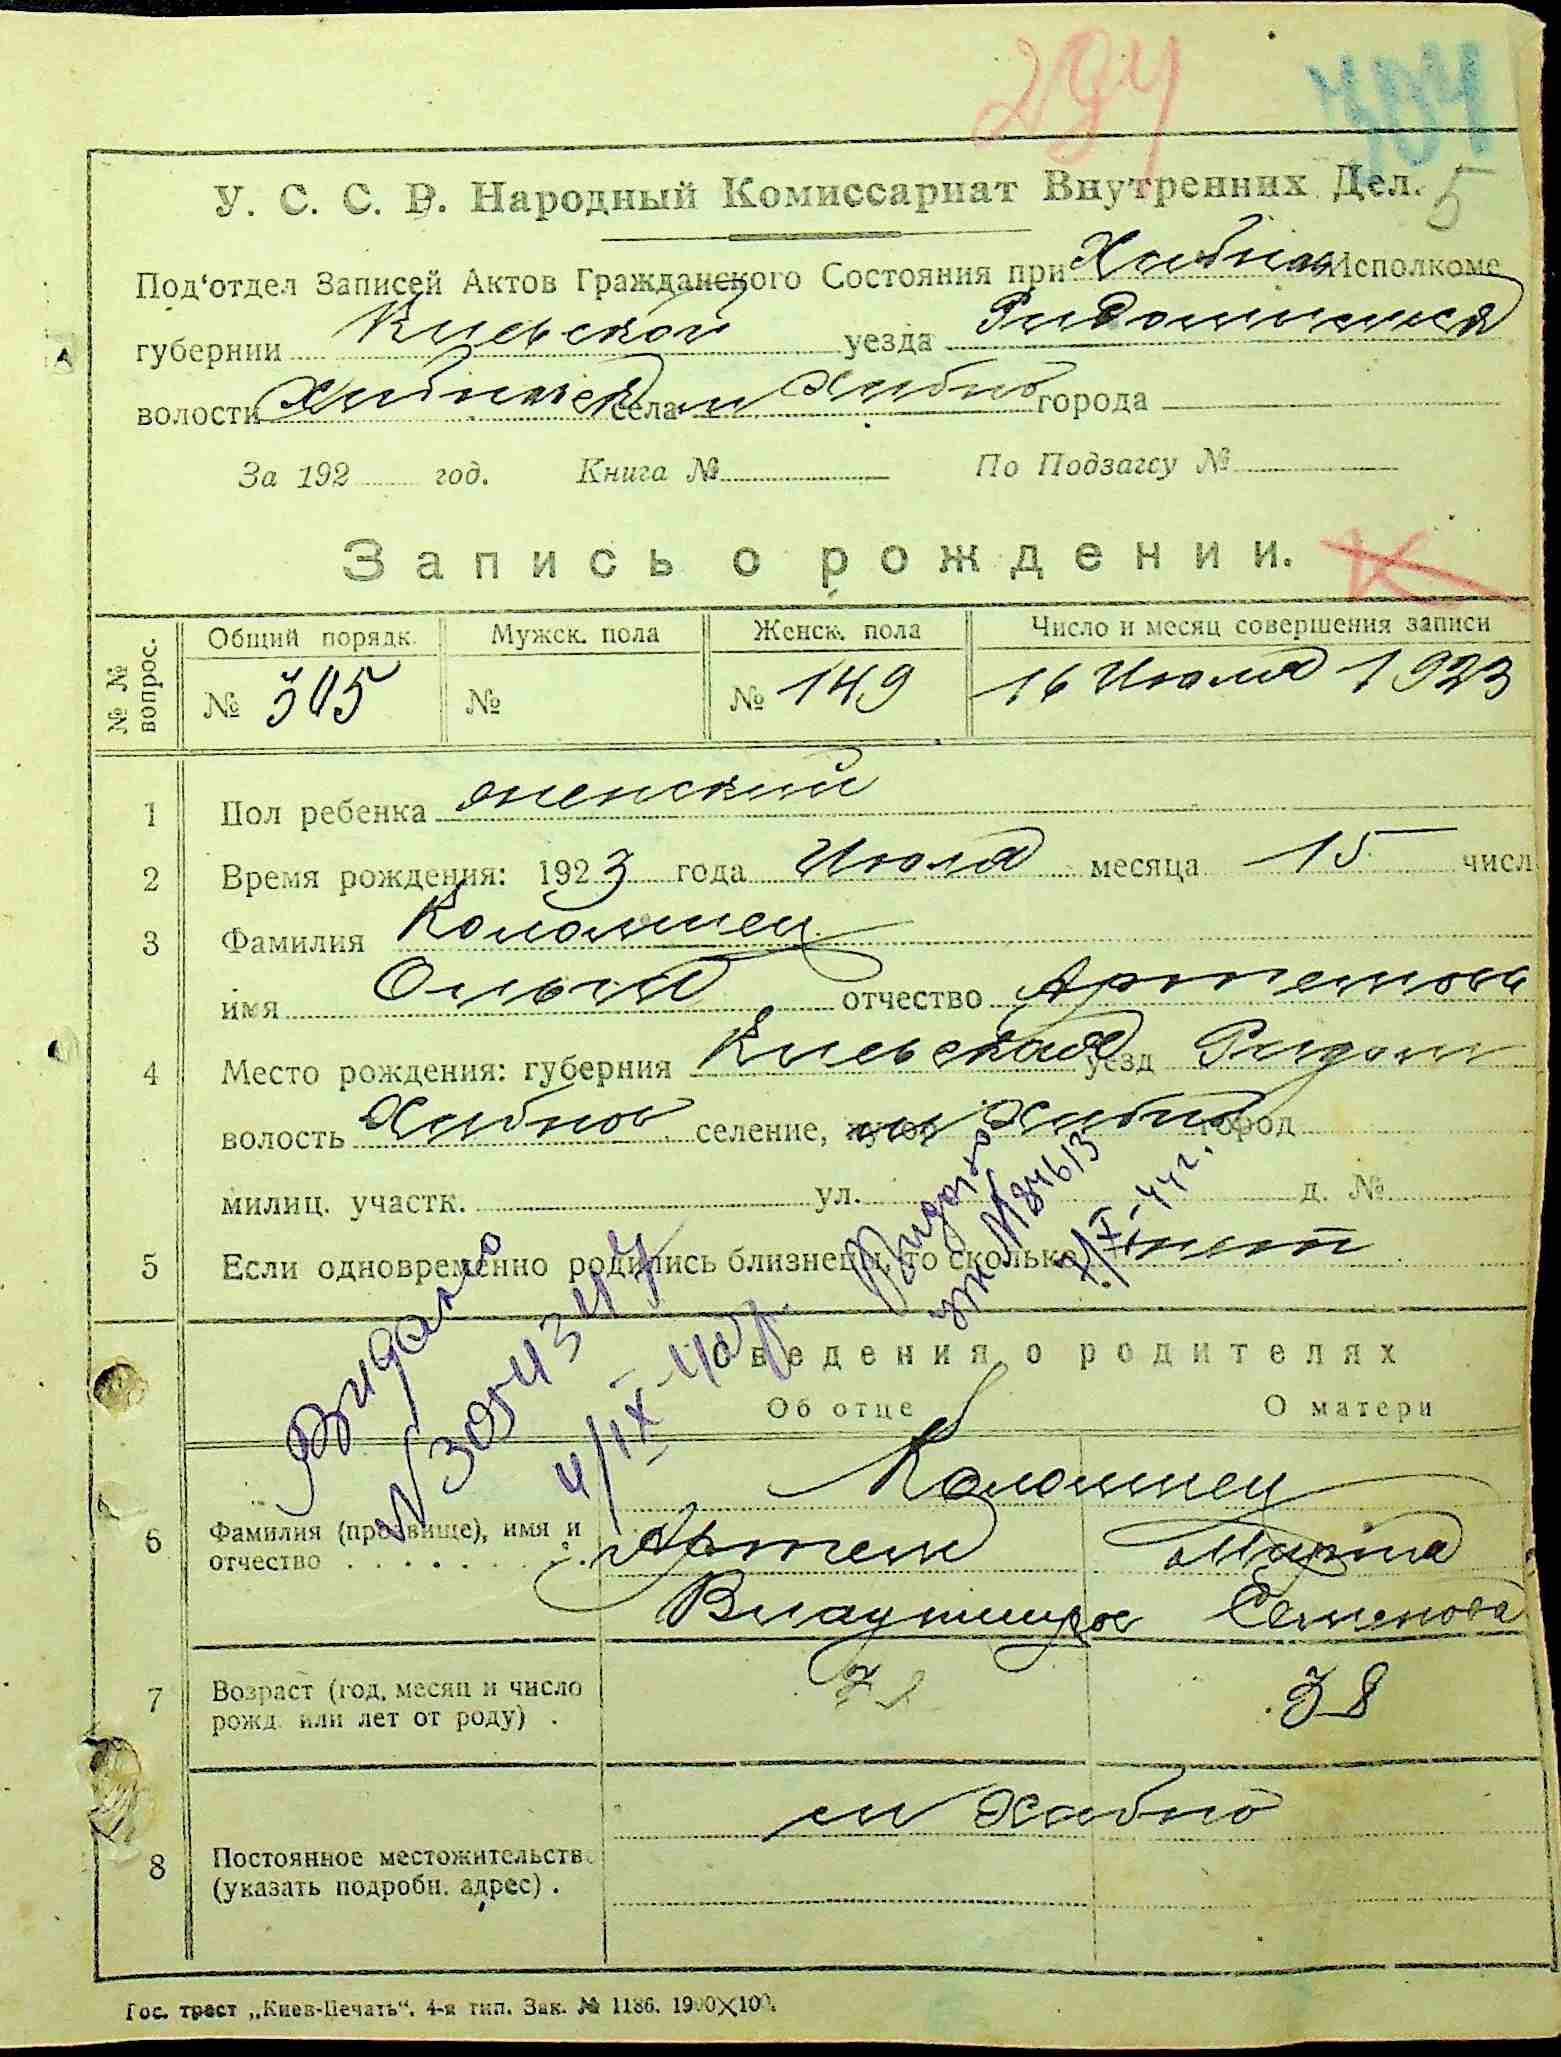 294 704
У. С. С. Р. Народный Комиссариат Внутренних Дел. 5
Под'отдел Записей Актов Гражданского Состояния при Хабном Исполкоме
губернии Киевской уезда
волости Хабное села м Хабно города
За 192 год. Книга № По Подзагсу №
Запись о рождении. К
№ № вопрос. Общий порядк. Мужск. пола Женск. пола Число и месяц совершения записи
№ 305 № № 149 16 Июля 1923
1 Пол ребенка женский
2 Время рождения: 1923 года Июля месяца 15 числ
3 Фамилия Коломиец
имя Ольга отчество Артемовн
4 Место рождения: губерния Киевская уезд Радом
волость Хабное селение, хутор м Хабно город
милиц. участк. ул. д. №
5 Если одновременно родились близнецы, то сколько нет
Видано
N 3054347
4/IX-40р.
Видано
N 84613
7/X-44 г.
Сведения о родителях
Об отце О матери
Коломиец
6 Фамилия (прозвище), имя и Артем Марта
отчество Владимиров Семенова
7 Возраст (год, месяц и число 38
рожд. или лет от роду) .
м Хабно
8 Постоянное местожительств
(указать подробн. адрес) .
Гос. трест „Киев-Печать“. 4-я тип. Зак. № 1186. 1900×100.